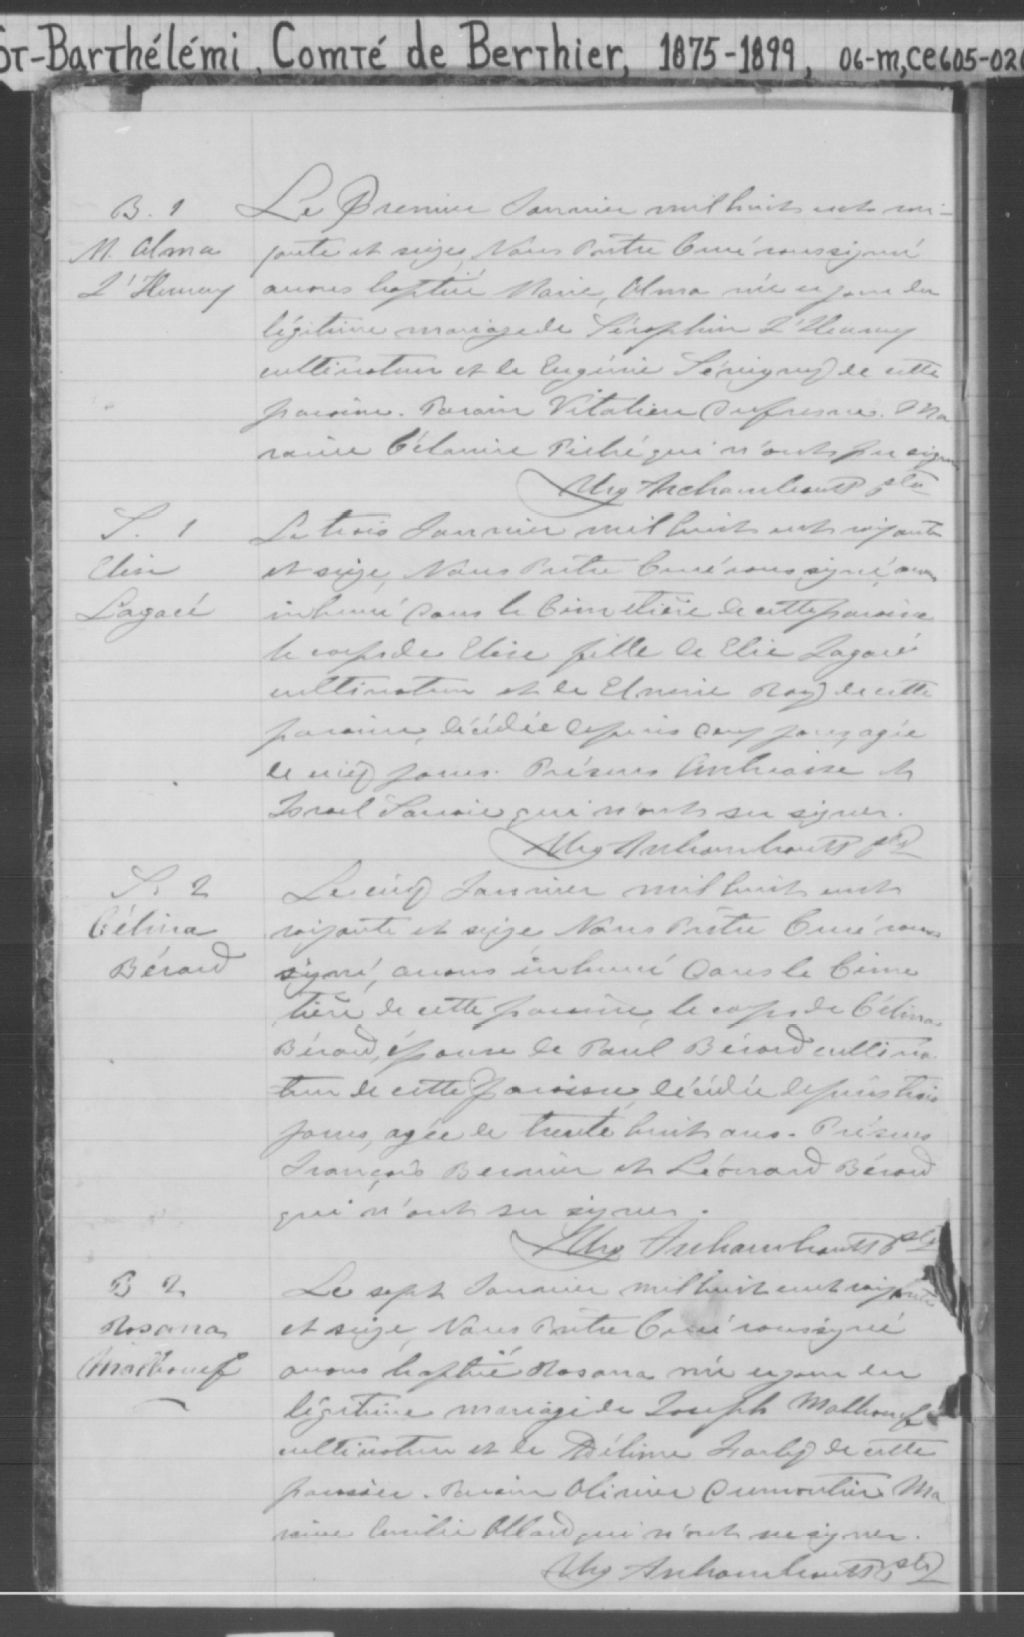 St-Barthélémi, Comté de Berthier, 1875-1899, 06-m,CE605-020
B. 1
M. Alma
Le Premier Janvier mil huit cent soi-
xante et seize, Nous Prêtre Curé soussigné
avons baptisé Marie, Alma née ce jour du
légitime mariage de Séraphin
cultivateur et de Eugénie Sévigny de cette
paroisse. Parain Vitalien Dufresne. Ma
raine Piché qui n'ont su signer
Urg Archambault ptre
S. 1
Elise
Lagacé
Le trois Janvier mil huit cent soixante
et seize, Nous Prêtre Curé soussigné, avons
inhumé dans le Cimetière de cette paroisse
le corps de Elise fille de Elie Lagacé
cultivateur et de Roy de cette
paroisse, décédée depuis deux jours, agée
de cinq jours. Présens Ambroise et
Israel Savoie qui n'ont su signer.
Urg Archambault ptre
S. 2
Célina
Bérard
Le cinq Janvier mil huit cent
soixante et seize Nous Prêtre Curé sous
signé, avons inhumé dans le Cime
tière de cette paroisse, le corps de Célina
Bérard, épouse de Paul Bérard cultiva
teur de cette Paroisse, décédée depuis trois
jours, agée de trente huit ans. Présens
François Bernier et Léonard Bérard
qui n'ont su signer.
Urg Archambault ptre
B 2
Rosanna
Malboeuf
Le sept Janvier mil huit cent soixante
et seize, Nous Prêtre Curé soussigné
avons baptisé Rosanna née ce jour du
légitime mariage de Joseph Malboeuf
cultivateur et de Délima de cette
paroisse. Parain Olivier Dumontier Ma
raine Allard qui n'ont su signer.
Urg Archambault ptre